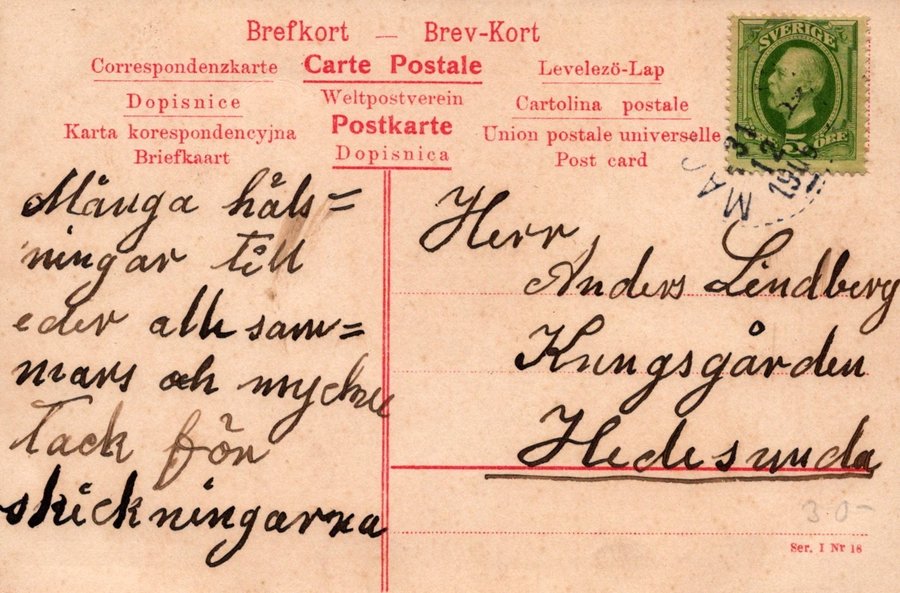 Brefkort — Brev-Kort
Correspondenzkarte Carte Postale Levelező-Lap
Dopisnice Weltpostverein Cartolina postale
Karta korespondencyjna Postkarte Union postale universelle
Briefkaart Dopisnica Post card
SVERIGE
5 ÖRE
31
12
Många häls=
ningar till
eder alle sam=
mans och mycket
Tack för
skickningarna
Herr
Anders Lindberg
Kungsgården
Hedesunda
30-
Ser. I Nr 18